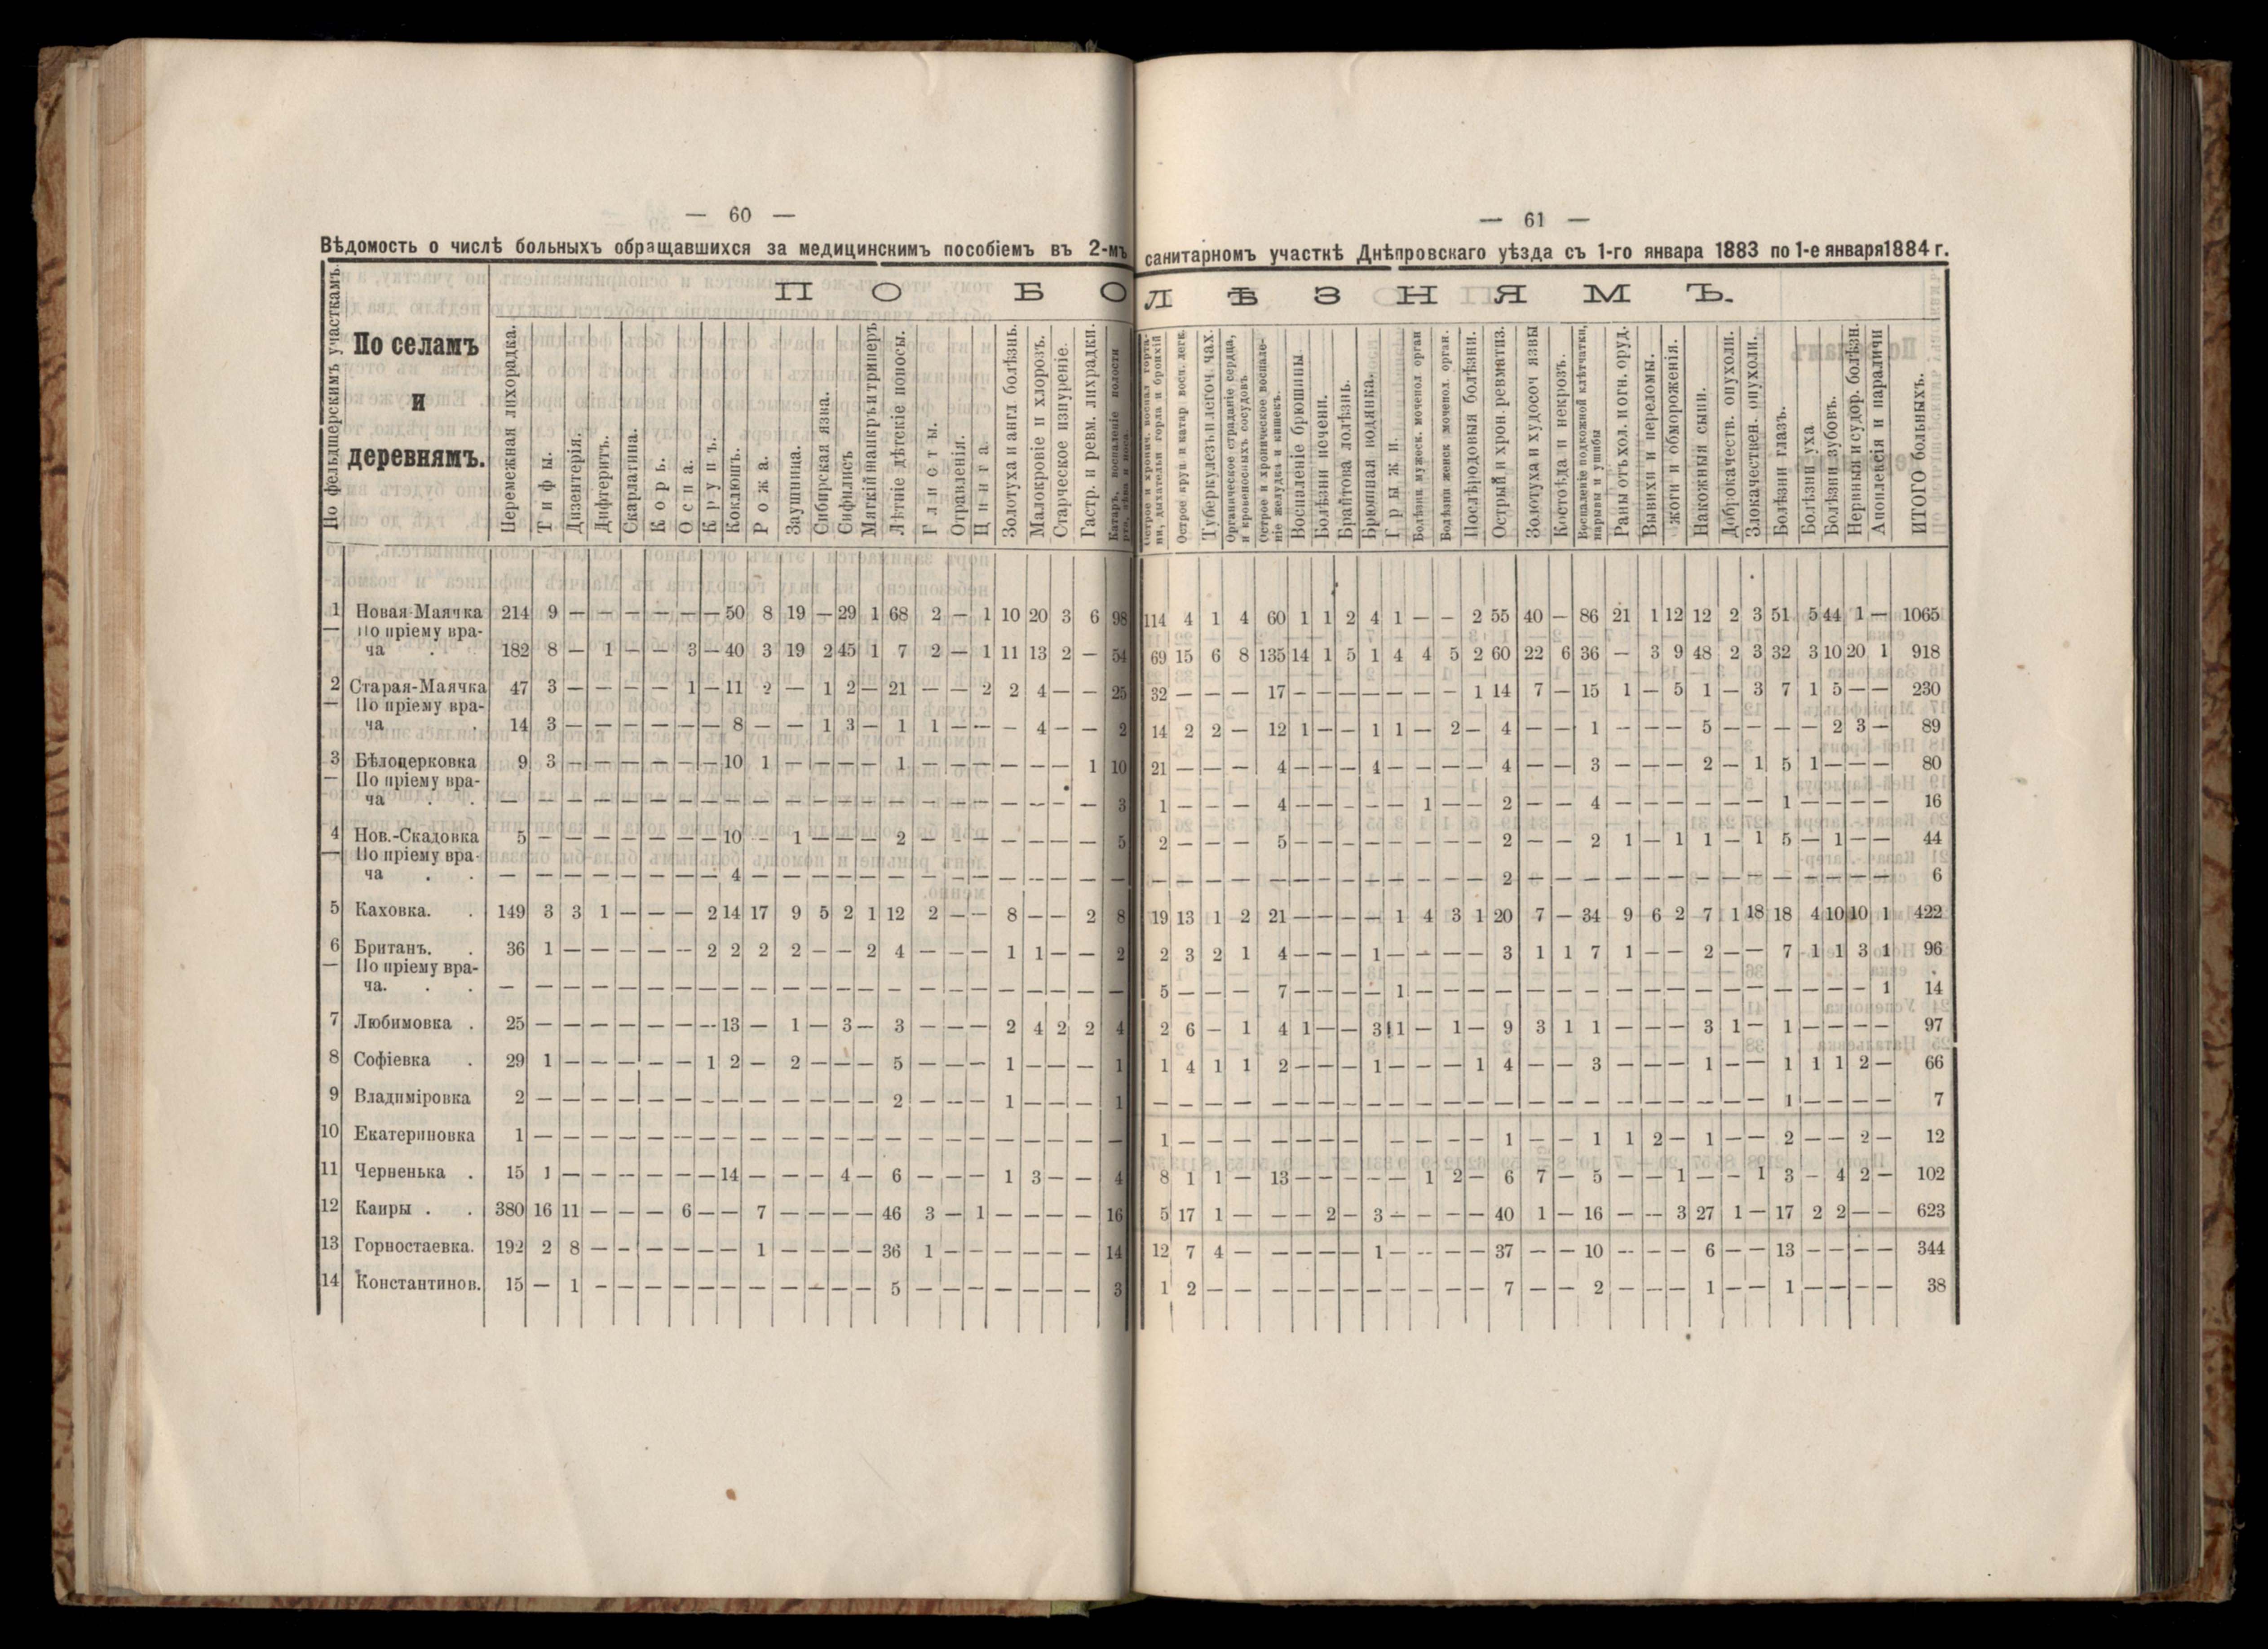 — 60 —
Вѣдомость о числѣ больныхъ обращавшихся за медицинскимъ пособіемъ въ 2-мъ
По фельдшерскимъ участкамъ.
По селамъ
и
деревнямъ.
П О Б О
Перемежная лихорадка.
Тифы.
Дизентерія.
Дифтеритъ.
Скарлатина.
Корь.
Оспа.
Крупъ.
Коклюшъ.
Рожа.
Заушница.
Сибирская язва.
Сифилисъ
Мягкій шанкръ и триперъ
Лѣтніе дѣтскіе поносы.
Глисты.
Отравленія.
Цинга.
Золотуха и англ болѣзнь.
Малокровіе и хлорозъ.
Старческое изнуреніе.
Гастр. и ревм. лихрадки.
Катаръ, воспаленіе полости
рта, зѣва и носа.
1 Новая-Маячка 214 9 — — — — — — 50 8 19 — 29 1 68 2 — 1 10 20 3 6 98
— По пріему вра-
ча . 182 8 — 1 — — 3 — 40 3 19 2 45 1 7 2 — 1 11 13 2 — 54
2 Старая-Маячка 47 3 — — — — 1 — 11 2 — 1 2 — 21 — — 2 2 4 — — 25
— По пріему вра-
ча . 14 3 — — — — — — 8 — — 1 3 — 1 1 — — — 4 — — 2
3 Бѣлоцерковка 9 3 — — — — — — 10 1 — — — — 1 — — — — — — 1 10
— По пріему вра-
ча . . — — — — — — — — — — — — — — — — — — — — — — 3
4 Нов.-Скадовка 5 — — — — — — — 10 — 1 — — — 2 — — — — — — — 5
— По пріему вра-
ча . . — — — — — — — — 4 — — — — — — — — — — — — — —
5 Каховка. . 149 3 3 1 — — — 2 14 17 9 5 2 1 12 2 — — 8 — — 2 8
6 Британъ. . 36 1 — — — — — 2 2 2 2 — — 2 4 — — — 1 1 — — 2
— По пріему вра-
ча. . . — — — — — — — — — — — — — — — — — — — — — — —
7 Любимовка . 25 — — — — — — — 13 — 1 — 3 — 3 — — — 2 4 2 2 4
8 Софіевка . 29 1 — — — — — 1 2 — 2 — — — 5 — — — 1 — — — 1
9 Владиміровка 2 — — — — — — — — — — — — — 2 — — — 1 — — — 1
10 Екатериновка 1 — — — — — — — — — — — — — — — — — — — — — —
11 Черненька . 15 1 — — — — — — 14 — — — 4 — 6 — — — 1 3 — — 4
12 Каиры . . 380 16 11 — — — 6 — — 7 — — — — 46 3 — 1 — — — — 16
13 Горностаевка. 192 2 8 — — — — — — 1 — — — — 36 1 — — — — — — 14
14 Константинов. 15 — 1 — — — — — — — — — — — 5 — — — — — — — 3
— 61 —
санитарномъ участкѣ Днѣпровскаго уѣзда съ 1-го января 1883 по 1-е января 1884 г.
Л Ѣ З Н Я М Ъ.
Острое и хронич. воспал горта-
ни, дыхательн горла и бронхій
Острое круп и катар восп. легк
Туберкулезъ и легоч чах.
Органическое страданіе сердца,
и кровеносныхъ сосудовъ
Острое и хроническое воспале-
ніе желудка и кишекъ.
Воспаленіе брюшины
Болѣзни печени.
Брайтова лолѣзнь.
Брюшная водянка.
Грыжи.
Болѣзни мужеск. мочепол орган
Болѣзни женск мочепол. орган.
Послѣродовыя болѣзни.
Острый и хрон. ревматиз.
Золотуха и худосоч язвы
Костоѣда и некрозъ.
Воспаленіе подкожной клѣтчатки,
нарывы и ушибы
Раны отъ хол. и огн. оруд.
Вывихи и переломы.
жоги и обмороженія.
Накожныя сыпи.
Доброкачеств. опухоли.
Злокачествен. опухоли.
Болѣзни глазъ.
Болѣзни уха
Болѣзни зубовъ.
Нервныя и судор. болѣзн.
Апоплексія и параличи
ИТОГО больныхъ.
114 4 1 4 60 1 1 2 4 1 — — 2 55 40 — 86 21 1 12 12 2 3 51 5 44 1 — 1065
69 15 6 8 135 14 1 5 1 4 4 5 2 60 22 6 36 — 3 9 48 2 3 32 3 10 20 1 918
32 — — — 17 — — — — — — — 1 14 7 — 15 1 — 5 1 — 3 7 1 5 — — 230
14 2 2 — 12 1 — — 1 1 — 2 — 4 — — 1 — — — 5 — — — — 2 3 — 89
21 — — — 4 — — — 4 — — — — 4 — — 3 — — — 2 — 1 5 1 — — — 80
1 — — — 4 — — — — — 1 — — 2 — — 4 — — — — — — 1 — — — — 16
2 — — — 5 — — — — — — — — 2 — — 2 1 — 1 1 — 1 5 — 1 — — 44
— — — — — — — — — — — — — 2 — — — — — — — — — — — — — — 6
19 13 1 2 21 — — — — 1 4 3 1 20 7 — 34 9 6 2 7 1 18 18 4 10 10 1 422
2 3 2 1 4 — — — 1 — — — — 3 1 1 7 1 — — 2 — — 7 1 1 3 1 96
5 — — — 7 — — — — 1 — — — — — — — — — — — — — — — — — 1 14
2 6 — 1 4 1 — — 3 11 — 1 — 9 3 1 1 — — — 3 1 — 1 — — — — 97
1 4 1 1 2 — — — 1 — — — 1 4 — — 3 — — — 1 — — 1 1 1 2 — 66
— — — — — — — — — — — — — — — — — — — — — — — 1 — — — — 7
1 — — — — — — — — — — — 1 — — 1 1 2 — 1 — — 2 — — 2 — 12
8 1 1 — 13 — — — — — 1 2 — 6 7 — 5 — — 1 — — 1 3 — 4 2 — 102
5 17 1 — — — 2 — 3 — — — — 40 1 — 16 — — 3 27 1 — 17 2 2 — — 623
12 7 4 — — — — — 1 — — — — 37 — — 10 — — — 6 — — 13 — — — — 344
1 2 — — — — — — — — — — — 7 — — 2 — — — 1 — — 1 — — — — 38